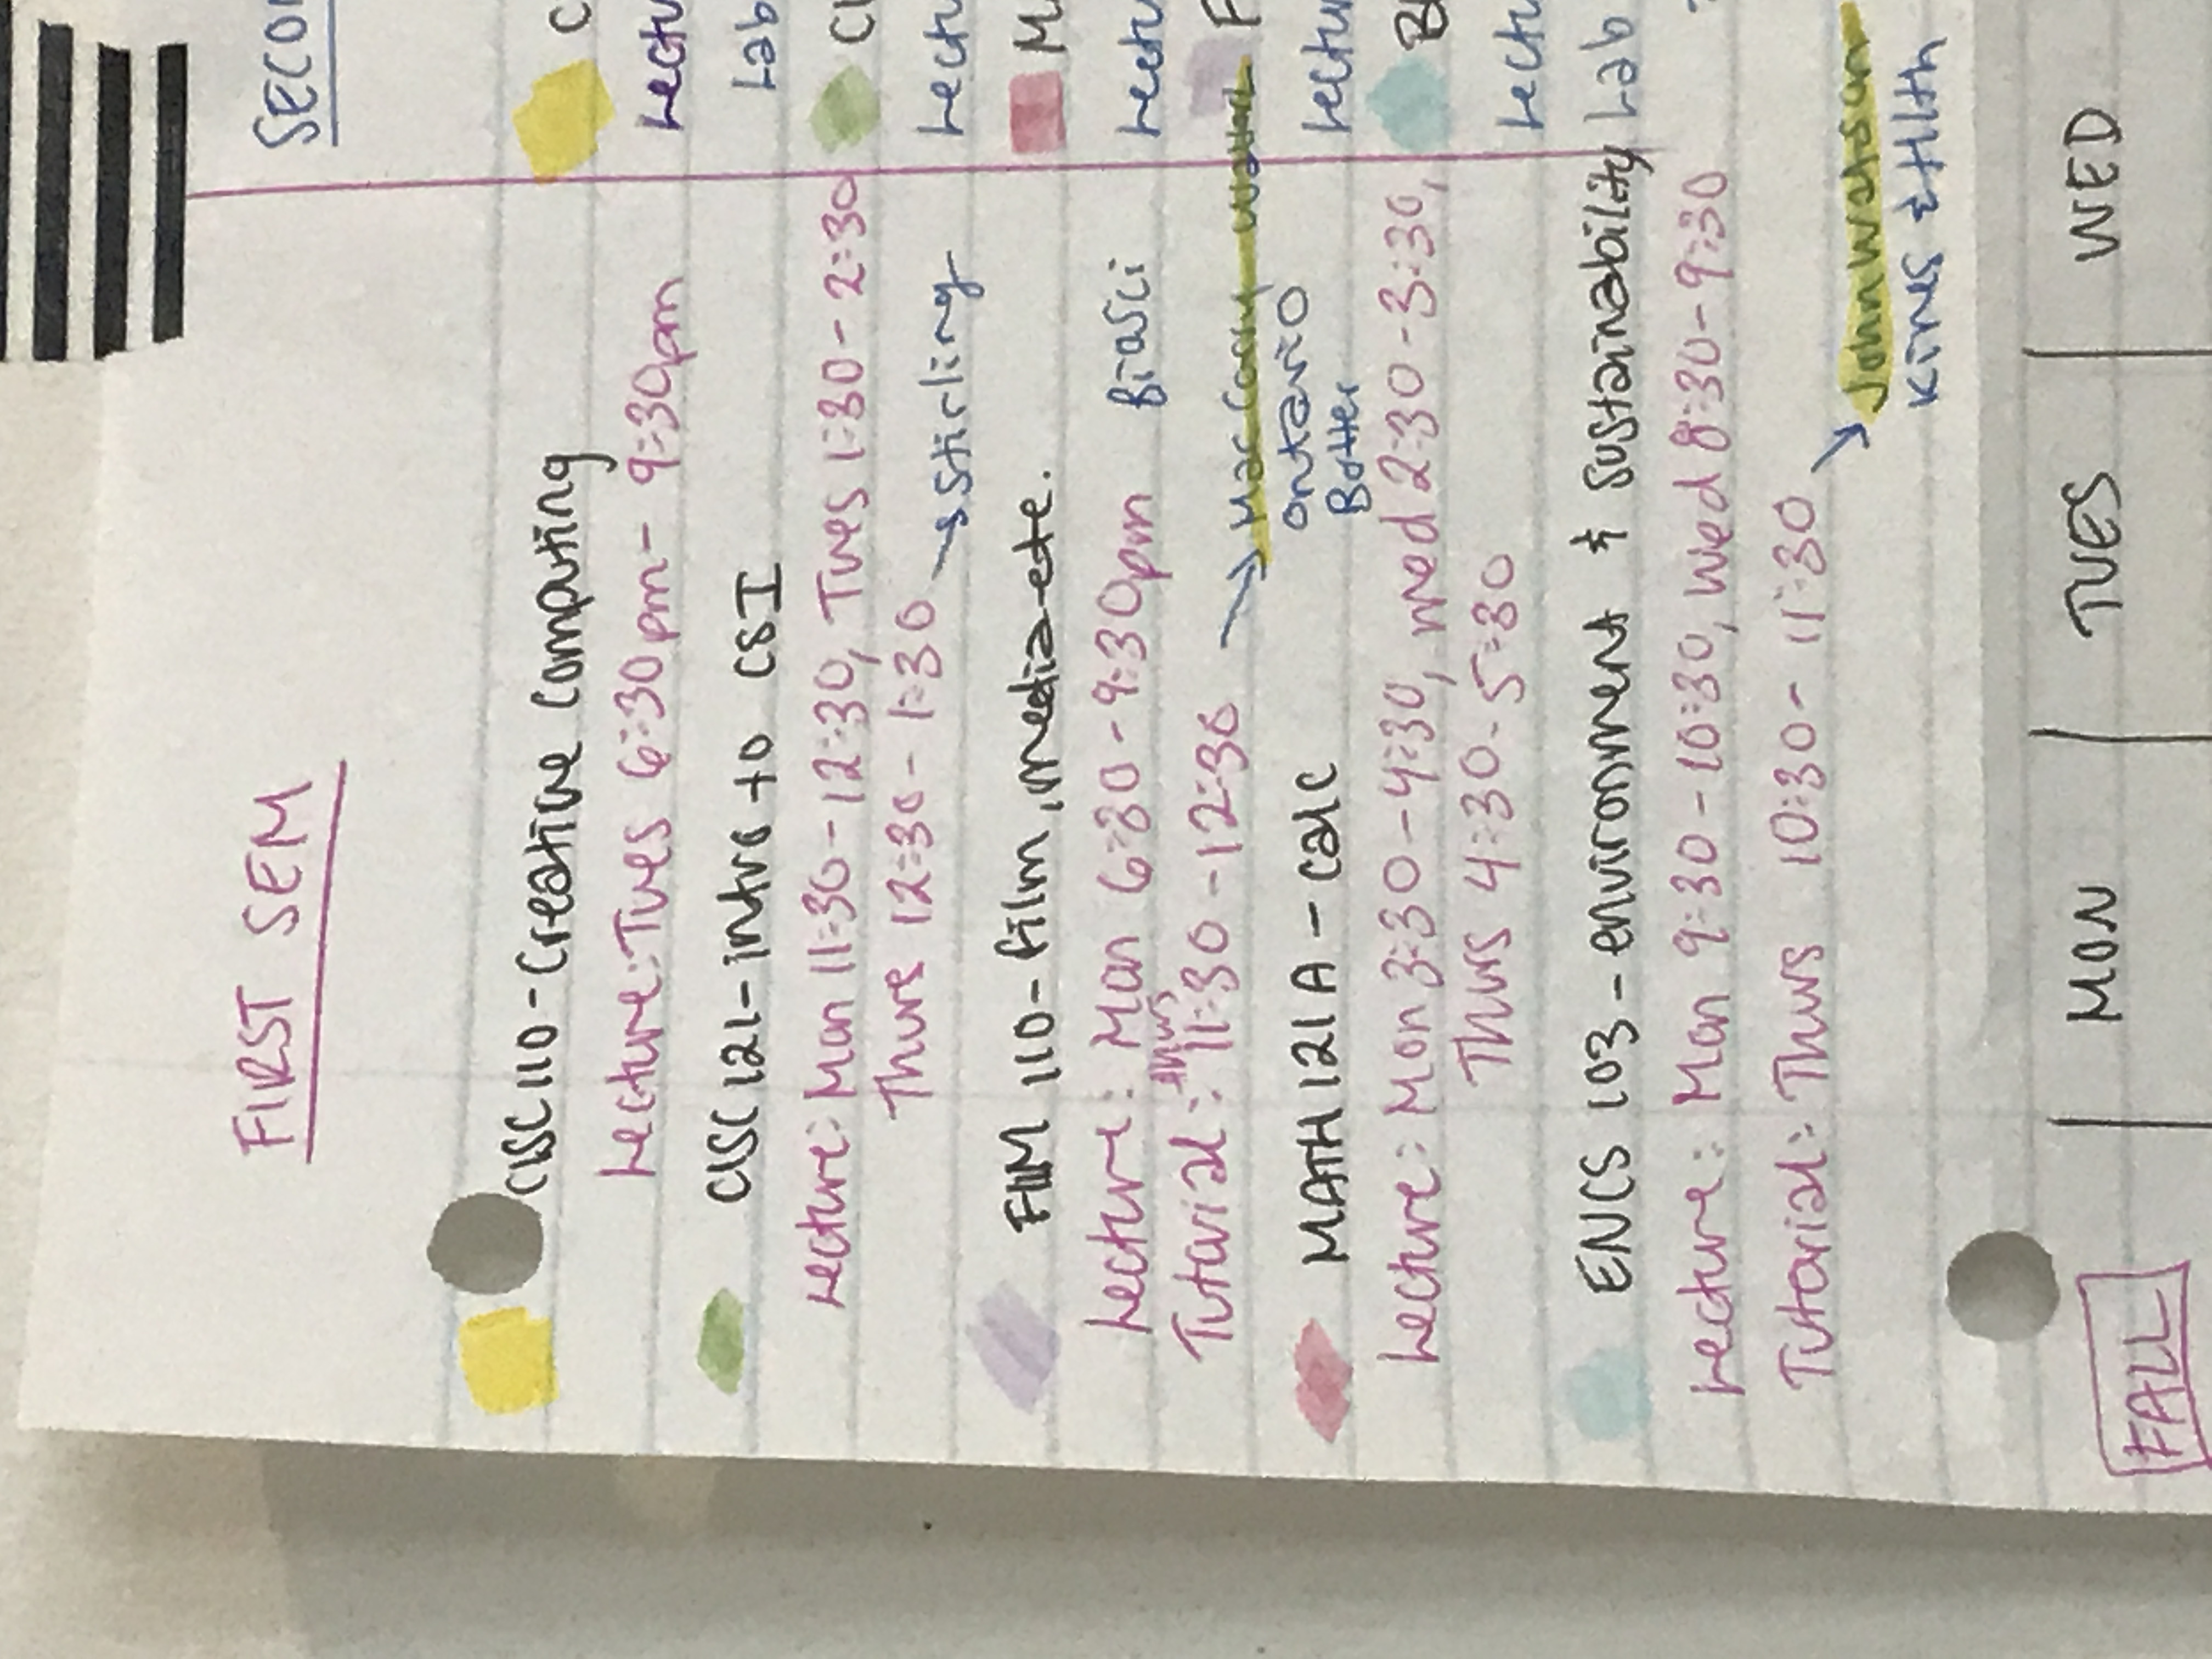 FIRST SEM
CISC 110 - Creative computing
Lecture: Tues 6:30pm - 9:30pm
CISC 121 - intro to CSI
Lecture: Mon 11:30 - 12:30, Tues 1:30 - 2:30
Thurs 12:30 - 1:30
Stirling
FILM 110 - film, media etc.
Lecture: Mon 6:30 - 9:30pm BioSci
thurs
Tutorial: 11:30 - 12:30
Mac Corry
Ontario
MATH 121 A - calc
Lecture: Mon 3:30 - 4:30, wed 2:30 - 3:30,
Thurs 4:30 - 5:30
ENCS 103 - environment & sustainability
Lecture: Mon 9:30 - 10:30, Wed 8:30 - 9:30
Tutorial: Thurs 10:30 - 11:30
John Watson
Kines & Hlth
SECO
C
Lectu
Lab
CI
Lectu
MA
Lectu
F
Lectu
B
Lectu
Lab
MON TUES WED
FALL